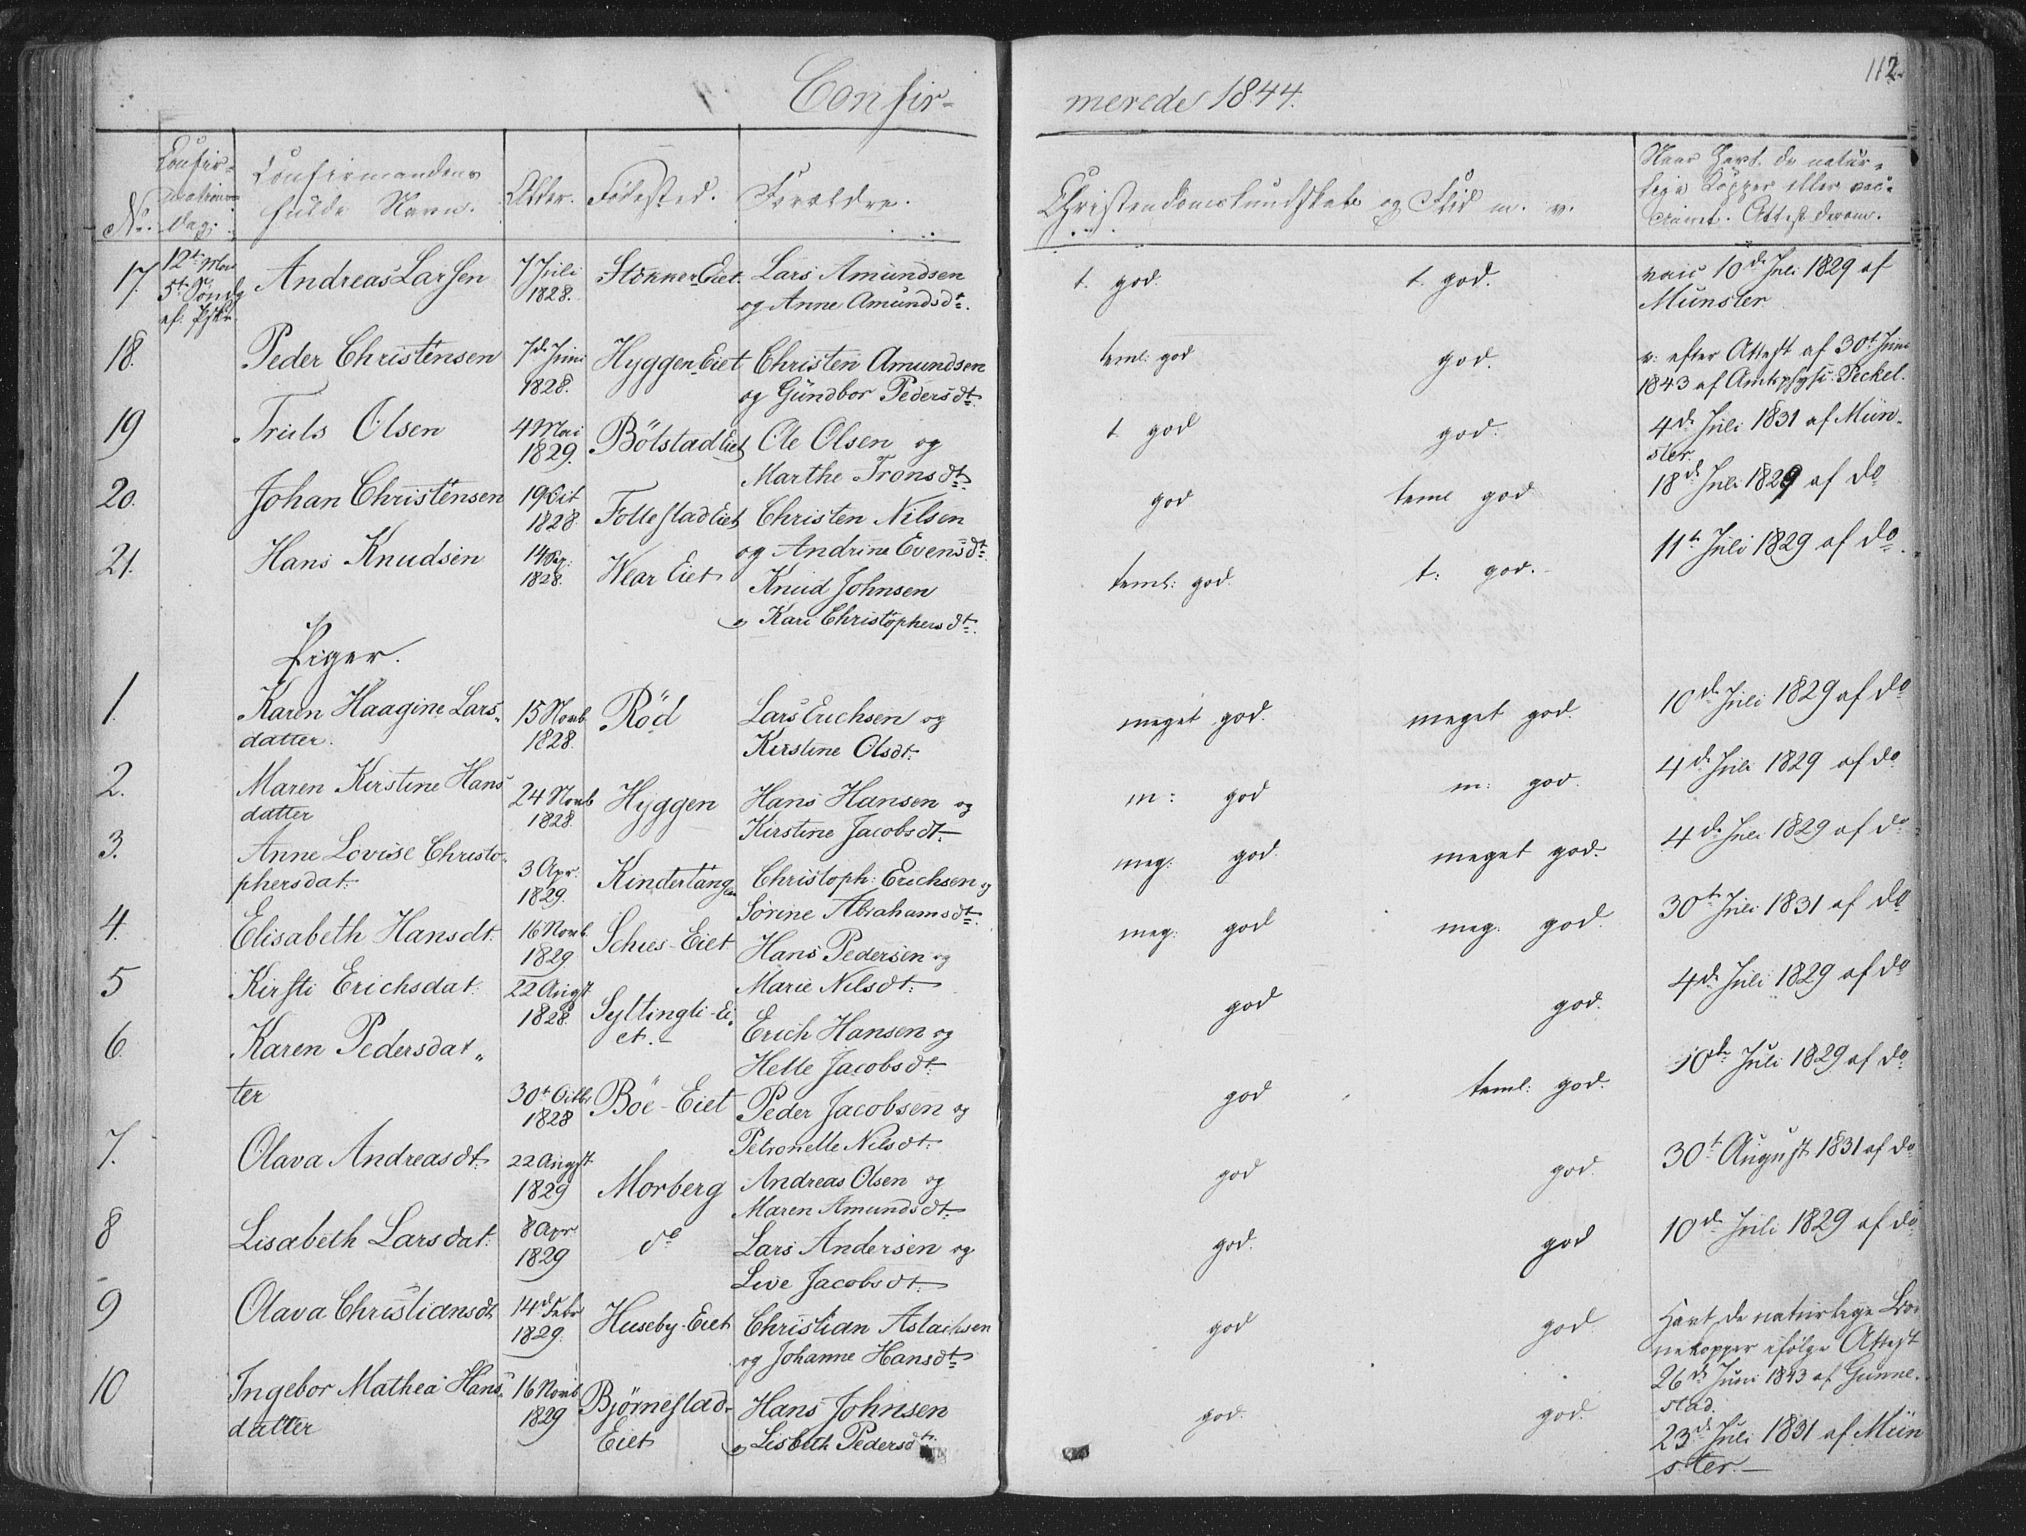 Confir-
merede 1844.
112.
No.
Confir-
mations
Dag.
Confirmandens
fulde Navn.
Alder.
Fødested.
Forældre.
Christendomskundskab og Flid m. v.
Naar havt de natur-
lige Kopper eller vac-
cineret. Attest derom.
17.
12te Mai
5t Søndg
ef: Pske.
Andreas Larsen
7 Juli
1828.
Stokker-Eiet.
Lars Amundsen
og Anne Amundsdt.
t. god.
t. god.
vacc 10de Juli 1829 af
Münster
18.
Peder Christensen
7de Juni
1828.
Hyggen-Eiet
Christen Amundsen
og Gundbor Pedersdt.
teml: god
god.
v: efter Attest af 30te Juni
1843 af Amtsphysi: Peckel.
19
Truls Olsen
4 Mai
1829.
Bölstad Eiet
Ole Olsen og
Marthe Tronsdt.
t. god
god.
4de Juli 1831 af Mün-
ster.
20.
Johan Christensen
19 Oct
1828
Follestad Eiet
Christen Nilsen
og Andrine Evensdt.
god
teml god
18de Juli 1829 af do
21.
Hans Knudsen
1828.
Wear Eiet
Knud Johnsen
o Kari Christophersdt.
teml: god.
t: god.
11te Juli 1829 af do.
Piger.
1.
Karen Haagine Lars-
datter.
15 Novb
1828.
Röd
Lars Erichsen og
Kirstine Olsdt.
meget god.
meget god.
10de Juli 1829 af do
2.
Maren Kirstine Hans
datter
24 Novb
1828.
Hyggen
Hans Hansen og
Kirstine Jacobsdt.
m: god
m: god.
4de Juli 1829 af do
3.
Anne Lovise Christo-
phersdat:
3 Apr.
1829.
Kindertangen
Christoph: Erichsen og
Sörine Abrahamsdt.
meg: god.
meget god.
4de Juli 1829 af do
4.
Elisabeth Hansdt.
16 Novb.
1829
Schies-Eiet
Hans Pedersen og
Marie Nilsdt:
meg: god
meg. god.
30te Juli 1831 af do
5
Kirsti Erichsdat.
22 Augst
1828.
Syltingli-Ei-
et.
Erich Hansen og
Helle Jacobsdt.
god
god.
4de Juli 1829 af do
6.
Karen Pedersdat-
ter
30te Octbr
1828
Böe-Eiet
Peder Jacobsen og
Petronelle Nilsdt.
god
teml: god.
10de Juli 1829 af do
7.
Olava Andreasdt.
22 Augst
1829
Morberg
Andreas Olsen og
Maren Amundsdt.
god
god.
30te August 1831 af do
8
Lisabeth Larsdat.
8 Apr
1829
do
Lars Andersen og
Live Jacobsdt.
god.
god
10de Juli 1829 af do
9
Olava Christiansdt
14de Febr
1829.
Huseby-Eiet
Christian Aslachsen
og Johanne Hansdt.
god
god
Havt de naturlige Bør-
nekopper ifølge Attest
26de Juni 1843 af Gunne-
stad.
10
Ingebor Mathea Hans-
datter
16 Novb
1829
Bjørnestad-
Eiet
Hans Johnsen
o Lisbeth Pedersdt.
god.
god.
23de Juli 1831 af Mün
ster.